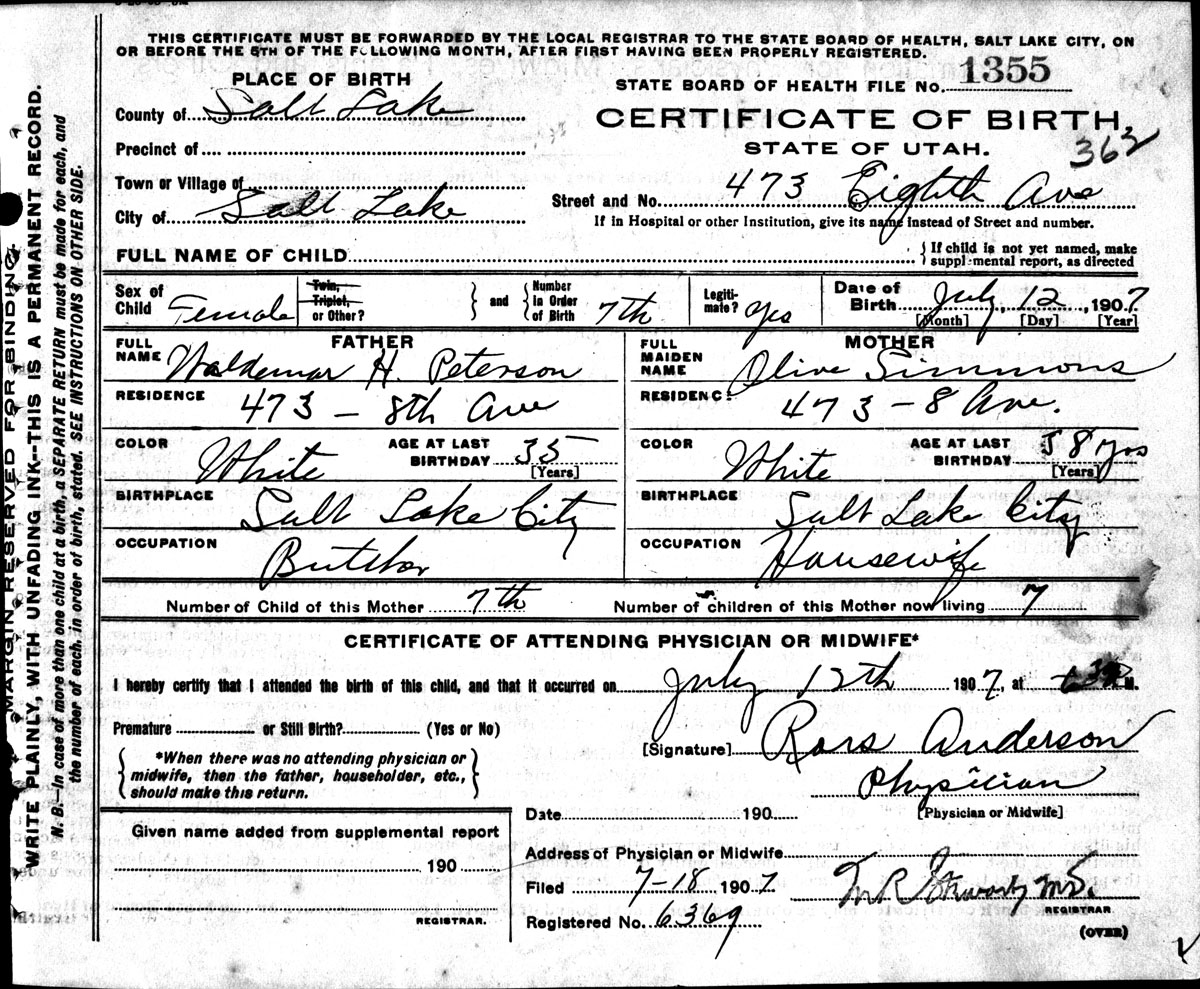 THIS CERTIFICATE MUST BE FORWARDED BY THE LOCAL REGISTRAR TO THE STATE BOARD OF HEALTH, SALT LAKE CITY, ON
OR BEFORE THE 5TH OF THE FOLLOWING MONTH, AFTER FIRST HAVING BEEN PROPERLY REGISTERED.
PLACE OF BIRTH
STATE BOARD OF HEALTH FILE No. 1355
County of Salt Lake
CERTIFICATE OF BIRTH
Precinct of
STATE OF UTAH.
363
Town or Village of
Street and No. 473 Eighth Ave
City of Salt Lake
If in Hospital or other Institution, give its name instead of Street and number.
FULL NAME OF CHILD
If child is not yet named, make
supplemental report, as directed
Sex of Child Female
Twin, Triplet, or Other?
and
Number in Order of Birth 7th
Legiti-mate? Yes
Date of Birth July 12, 1907
[Month] [Day] [Year]
FATHER
MOTHER
FULL NAME Waldemar H. Peterson
FULL MAIDEN NAME Olive Simmons
RESIDENCE 473 - 8th Ave
RESIDENCE 473 - 8 Ave.
COLOR White
AGE AT LAST BIRTHDAY 35 [Years]
COLOR White
AGE AT LAST BIRTHDAY 38 yrs [Years]
BIRTHPLACE Salt Lake City
BIRTHPLACE Salt Lake City
OCCUPATION Butcher
OCCUPATION Housewife
Number of Child of this Mother 7th
Number of children of this Mother now living 7
CERTIFICATE OF ATTENDING PHYSICIAN OR MIDWIFE*
I hereby certify that I attended the birth of this child, and that it occurred on July 12th 1907, at M.
Premature or Still Birth? (Yes or No)
[Signature] Ross Anderson
*When there was no attending physician or
midwife, then the father, householder, etc.,
should make this return.
Physician
[Physician or Midwife]
Date 190
Given name added from supplemental report
190
REGISTRAR.
Address of Physician or Midwife
Filed 7-18 1907
M.D.
REGISTRAR
Registered No. 6369
(OVER)
MARGIN RESERVED FOR BINDING
WRITE PLAINLY, WITH UNFADING INK--THIS IS A PERMANENT RECORD.
N. B.--In case of more than one child at a birth, a SEPARATE RETURN must be made for each, and
the number of each, in order of birth, stated. SEE INSTRUCTIONS ON OTHER SIDE.